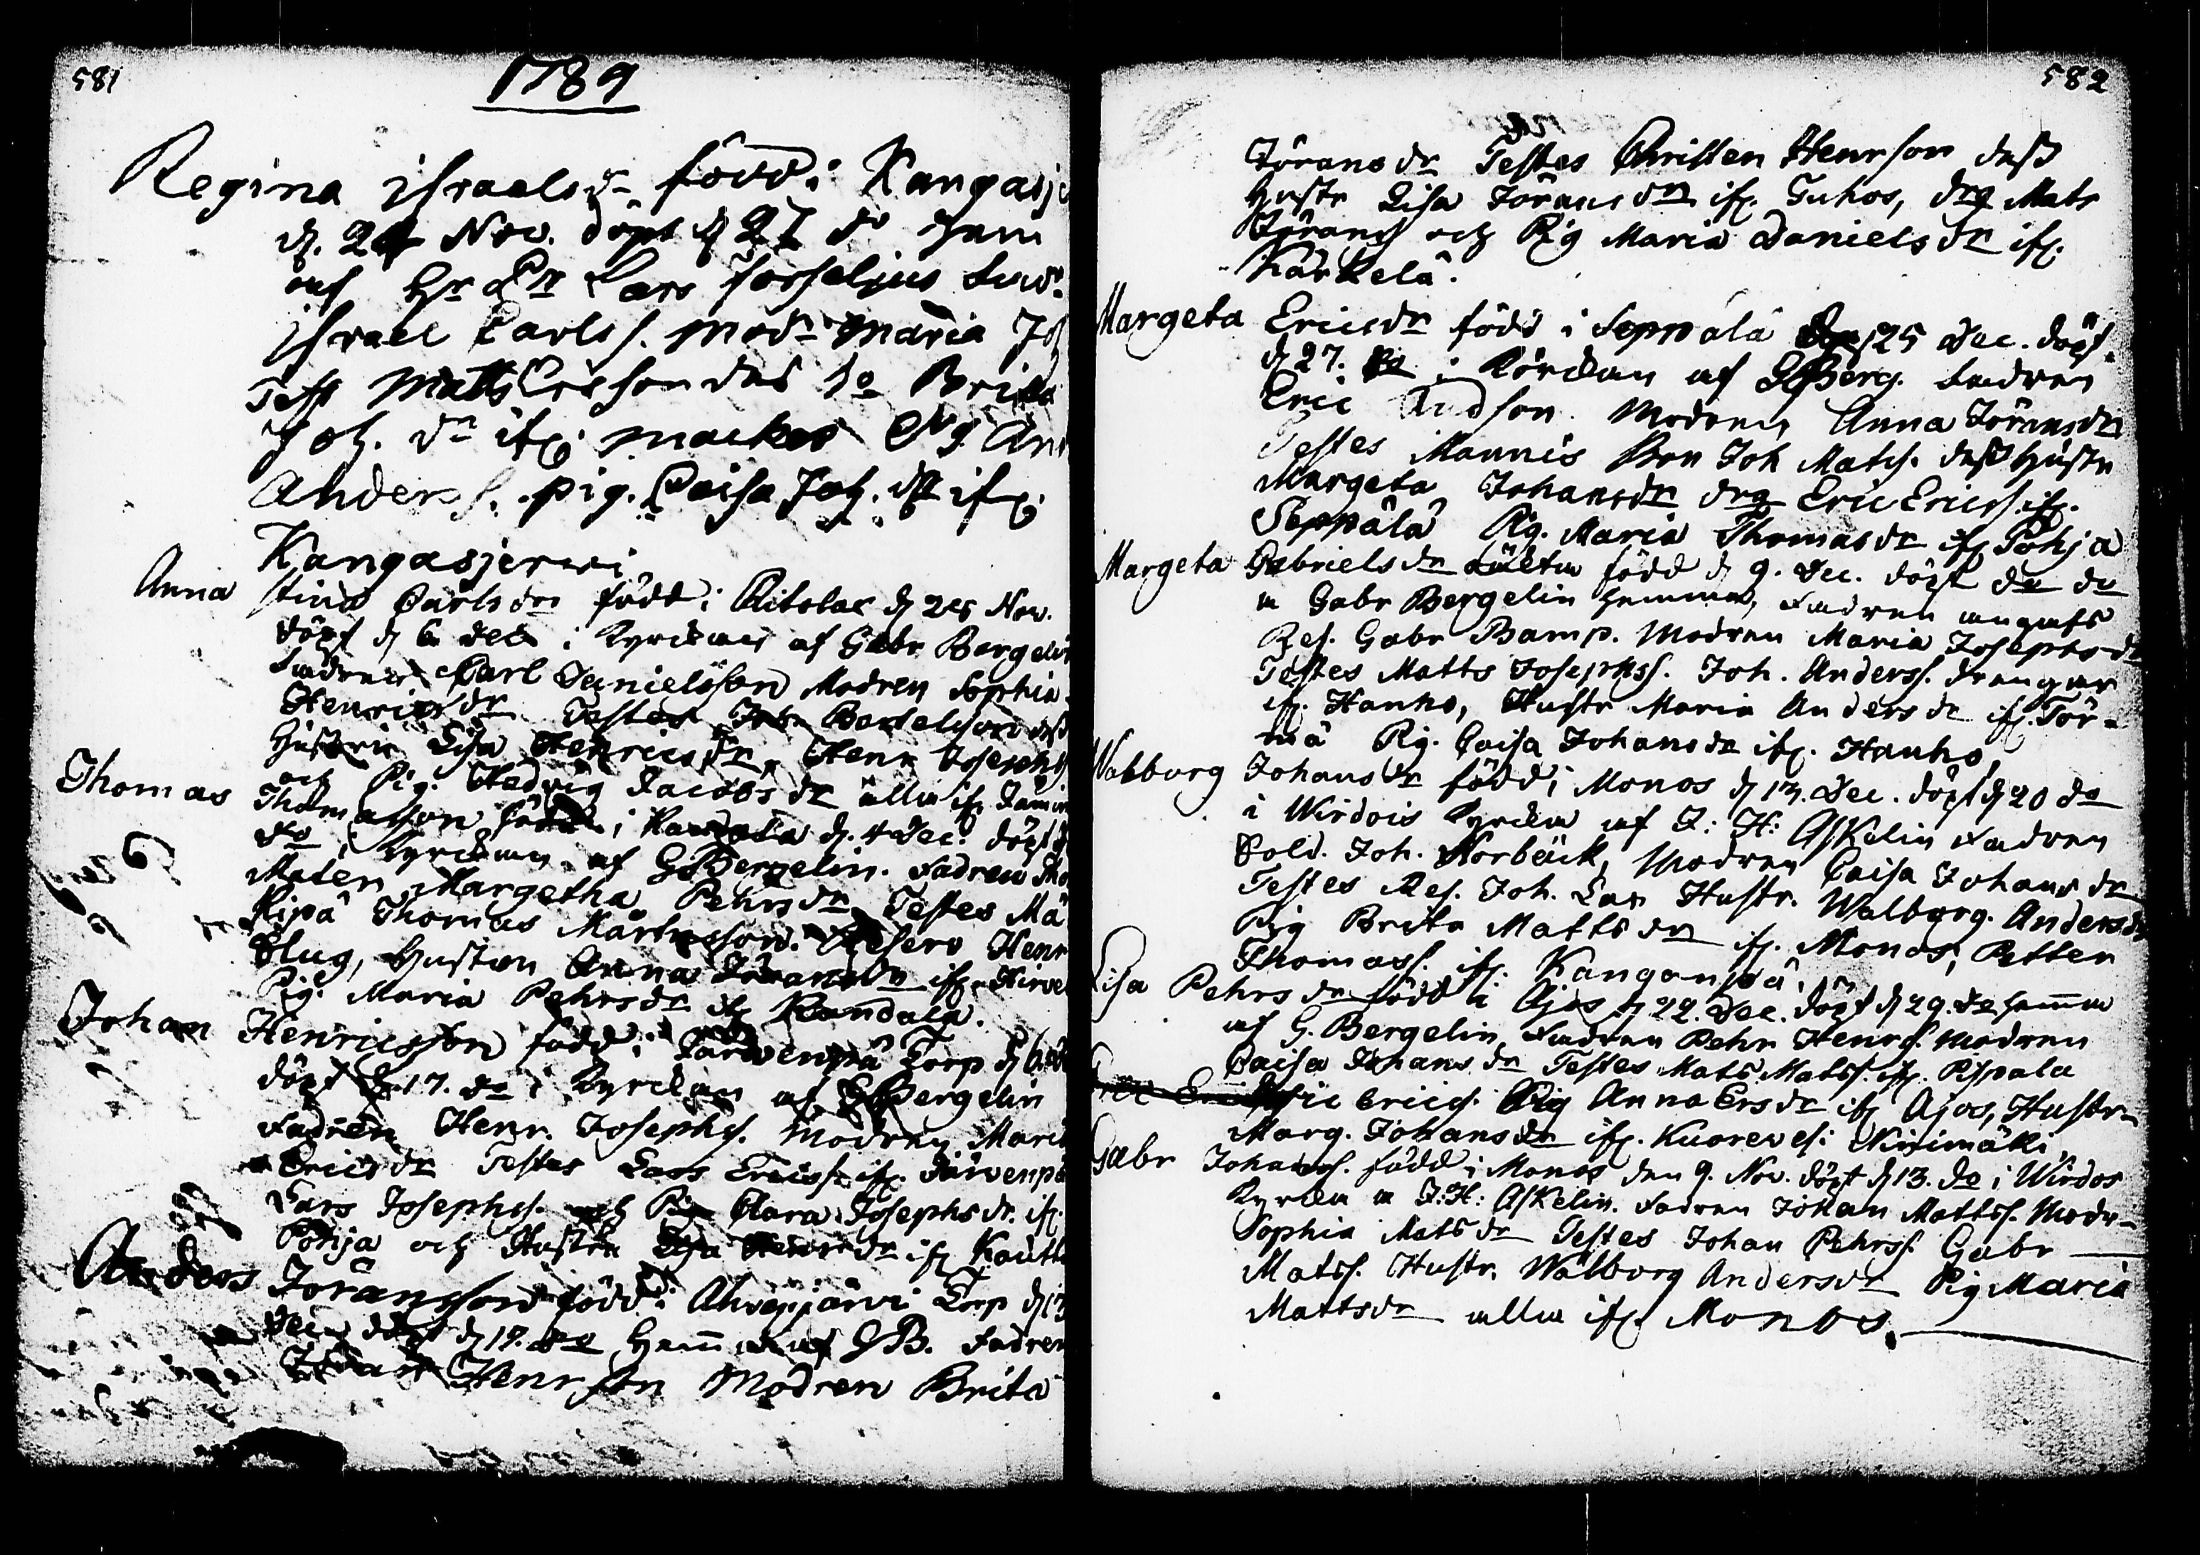 581
1789
Regina israels dr född i Kangasj
d. 24 Nov. döpt d 27 do hem
af Hr Lars forseljus
israel Carls s. mod. maria Joh
Test Matts Ersson des ho Brita
Joh. dr ifr. mackes An
Anders s. pig. Caisa Joh. dr ifr.
Kangasjerwi
Anna Stina Carls dr född i Ritolac d 28 Nov.
döpt d 6 dec i Kyrckan af Gabr Bergelin
Fadren Carl Danielsson Modren Sophia
Henrics dr Testes Bertelsson dess
Hustru Lisa Henrics dr, Henr Josephs
och Pig. Hedvig Jacobs dr alla ifr
Thomas Thomasson född i d. 4 Dec. döpt d
do i Kyrckan af GBergelin. Fadren Tho
Maten, Margetha Pehrs dr Testes Mä
Ripä Thomas Mårtensson. Reserv Henr
Slug, Hustru Anna Jöransdr ifr
Pig. Maria Pehrs dr ifr Randala.
Johan Henricsson född i Järwenpä Torp d 6
döpt d 17. do i Kyrckan af GBergelin
Fadren Henr. Josephs. Modren Maria
Erics dr Testes Lars Ericss. ifr. Järwenpä
Lars Josephs. och Pig Clara Josephs dr. ifr.
Pohja och Hustru Lisa dr ifr Kautt
Anders Jöransson född i Ahvenjärvi Torp d 13
Dec döpt d 19. do Hemma af GB. Fadren
Jöran Henrsson Modren Brita
582
Jörans dr Testes Christen Henrson dess
Hustr Lisa Jörans dr ifr. Tuhos, drg Mats
Jöranss och Pig Maria Daniels dr ifr.
Kärkelä.
Margeta Erics dr född i Seppälä 25 Dec. döpt
d 27. do i Körckan af GBerg. Fadren
Eric Andson. Modren Anna Jöransdr
Testes Mannis Bon Joh Mats. dess Hustr
Margeta Johansdr drg Eric Ericss. ifr.
Seppälä Pig. Maria Thomasdr ifr Pohja
Margeta Gabriels dr född d 9. Dec. döpt do do
a Gabr Bergelin hemma, Fadren
Res. Gabr Bamp. Modren Maria Josephs dr
Testes Matts Josephss. Joh. Anderss. drengar
ifr. Hanho, Hustr Maria Anders dr ifr. Tör-
mä Pig. Caisa Johans dr ifr. Hanho
Wabborg Johans dr född i Monos d 13. Dec. döpt d 20 do
i Wirdois Kyrcka af J: H: Askelin Fadren
Sold. Joh. Norbäck, Modren Caisa Johans dr
Testes Res. Joh. Lax Hustr. Walborg. Anders dr
Pig Brita Matts dr ifr. Monos, Petter
Thomass. ifr. Kangonpä.
Lisa Pehrs dr född i Ajos d 22. Dec. döpt d 29. do hemma
af G. Bergelin, Fadren Pehr Henrs. Modren
Caisa Johans dr Testes Mats Matss. ifr. Rispala
Eric Erics. Pig Anna Ers dr ifr Ajos, Hustr
Marg. Johans dr ifr. Kuorevesi Kirimäki
Gabr Johanss. född i Monos den 9. Nov. döpt d 13. do i Wirdos
Kyrcka a J: H: Askelin. Fadren Johan Mattss. Modr
Sophia Mats dr Testes Johan Pehrss. Gabr
Matss. Hustr. Walborg Andersdr Pig Maria
Mattsdr alla ifr. Monos.